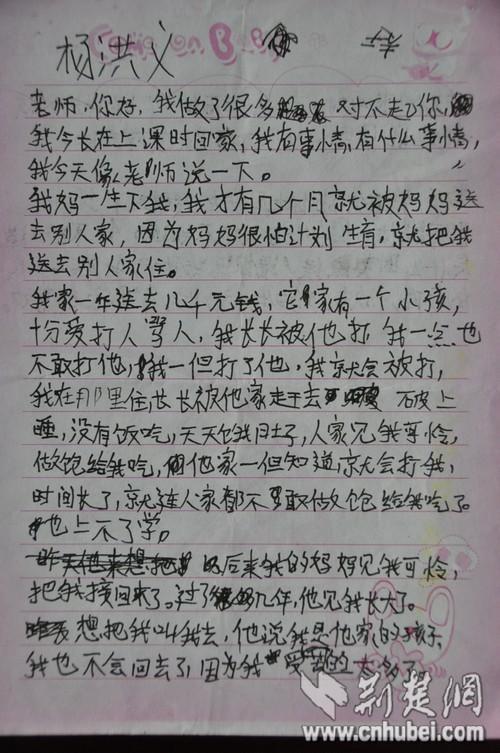 杨洪义
老师，你好，我做了很多对不走你，
我今长在上课时回家，我有事情，有什么事情，
我今天像老师说一下。
我妈一生下我，我才有几个月就被妈妈送
去别人家，因为妈妈很怕计划生育，就把我
送去别人家住。
我家一年送去几千元钱，它家有一个小孩，
十分爱打人骂人，我长长被他打，我一点也
不敢打他，我一但打了他，我就会被打，
我在那里住，长长被他家赶去石皮上
睡，没有饭吃，天天饿肚子，人家见我可怜，
做饱给我吃，他家一但知道，就会打我，
时间长了，就连人家都不敢做饱给我吃了。
也上不了学。
后来我的妈妈见我可怜，
把我接回来了。过了几年，他见我长大了。
想把我叫我去，他说我是他家的孩子，
我也不会回去了，因为我受的太多了
荆楚網
www.cnhubei.com